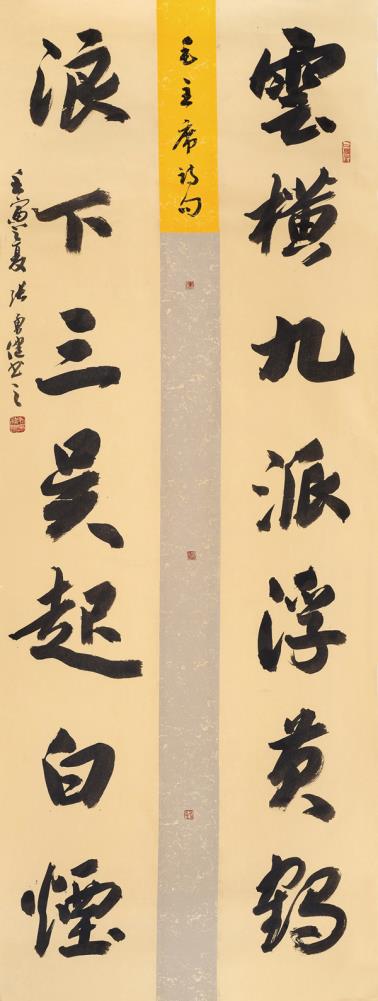 雲橫九派浮黄鶴
浪下三吳起白煙
毛主席詩句
壬寅之夏張